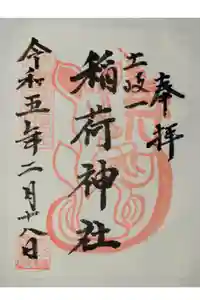 奉拝
土支一
稲荷神社
令和五年二月十八日